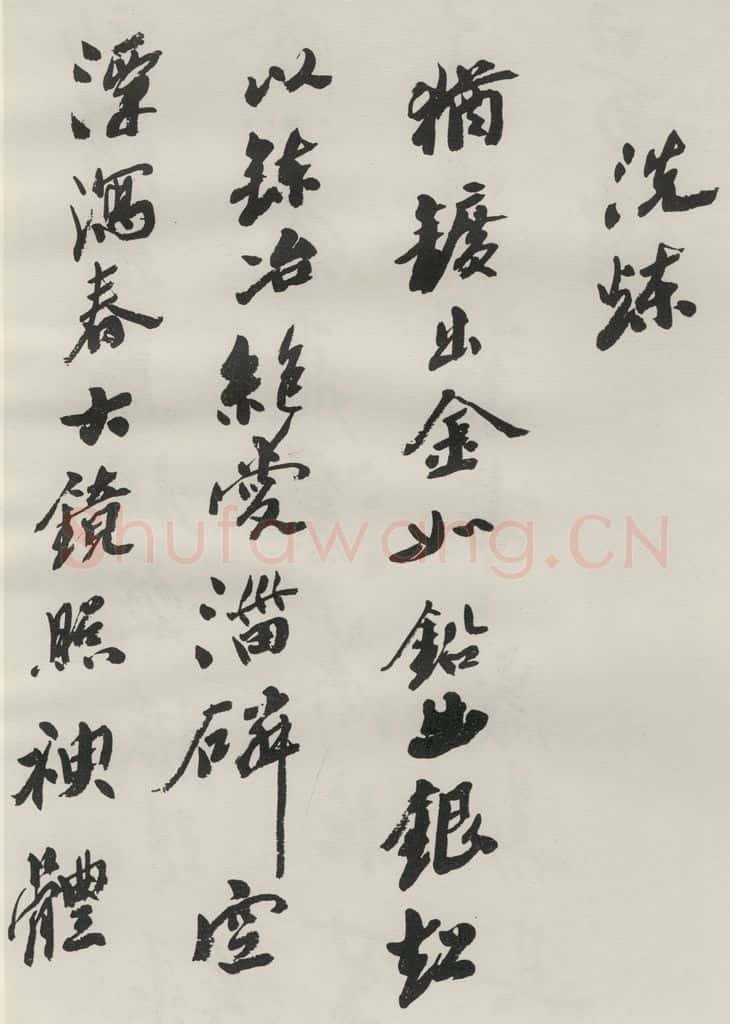 洗煉
猶鑛出金如鉛出銀超
心鍊冶絕愛淄磷空
潭瀉春古鏡照神體
Shufawang.CN